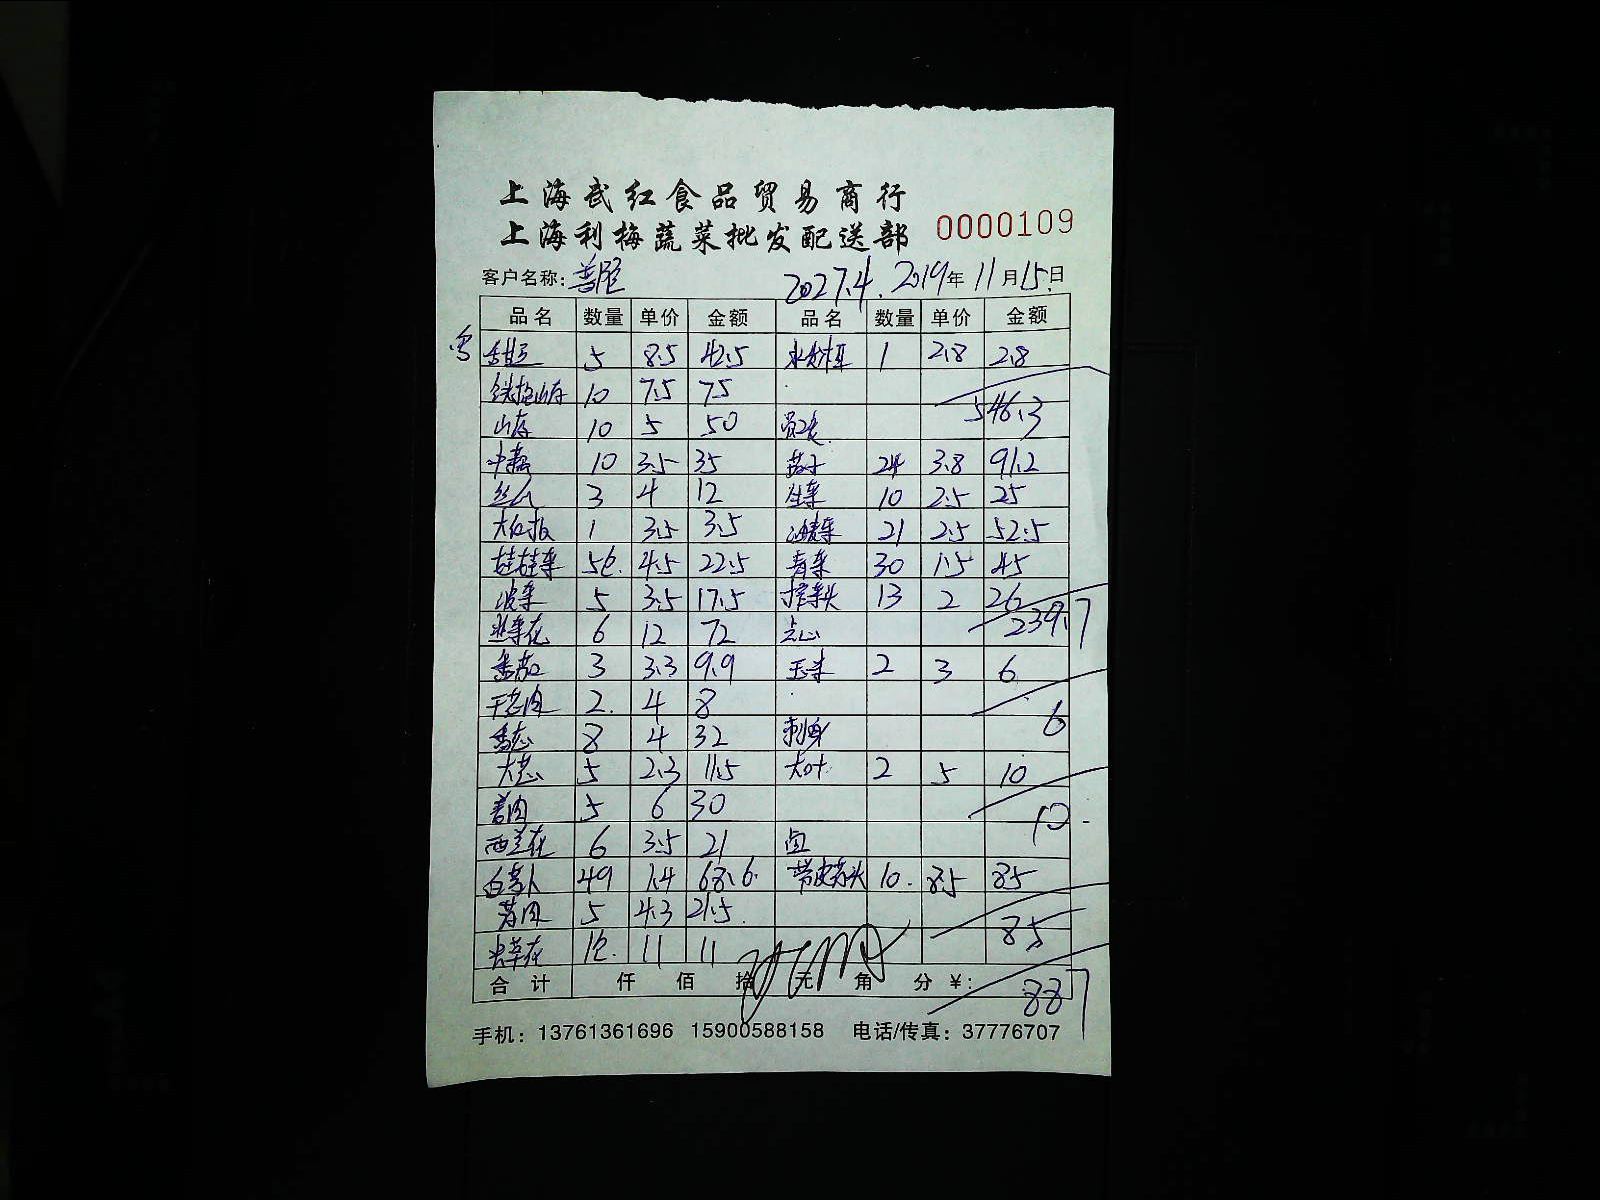 上海武红食品贸易商行
上海利梅蔬菜批发配送部 0000109
客户名称: 2027.4. 2019年11月15日
品名 数量 单价 金额 品名 数量 单价 金额
5 8.5 42.5 1 2.8 2.8
铁棍山存 10 7.5 75
546.3
山存 10 5 50 员工食
中藕 10 3.5 35 茄子 24 3.8 91.2
丝瓜 3 4 12 生菜 10 2.5 25
大红椒 1 3.5 3.5 油麦菜 21 2.5 52.5
娃娃菜 5包. 4.5 22.5 青菜 30 1.5 45
菠菜 5 3.5 17.5 榨菜头 13 2 26
239.7
韭菜花 6 12 72 点心
番茄 3 3.3 9.9 玉米 2 3 6
干葱肉 2. 4 8
6
香葱 8 4 32 刺身
大葱 5 2.3 11.5 大叶 2 5 10
姜肉 5 6 30
10.
西兰花 6 3.5 21 卤
白萝卜 49 1.4 68.6 10. 8.5 85
5 4.3 21.5.
85
虫草花 1包. 11 11
合计 仟 佰 拾 元 角 分 ¥: 887
手机: 13761361696 15900588158 电话/传真: 37776707